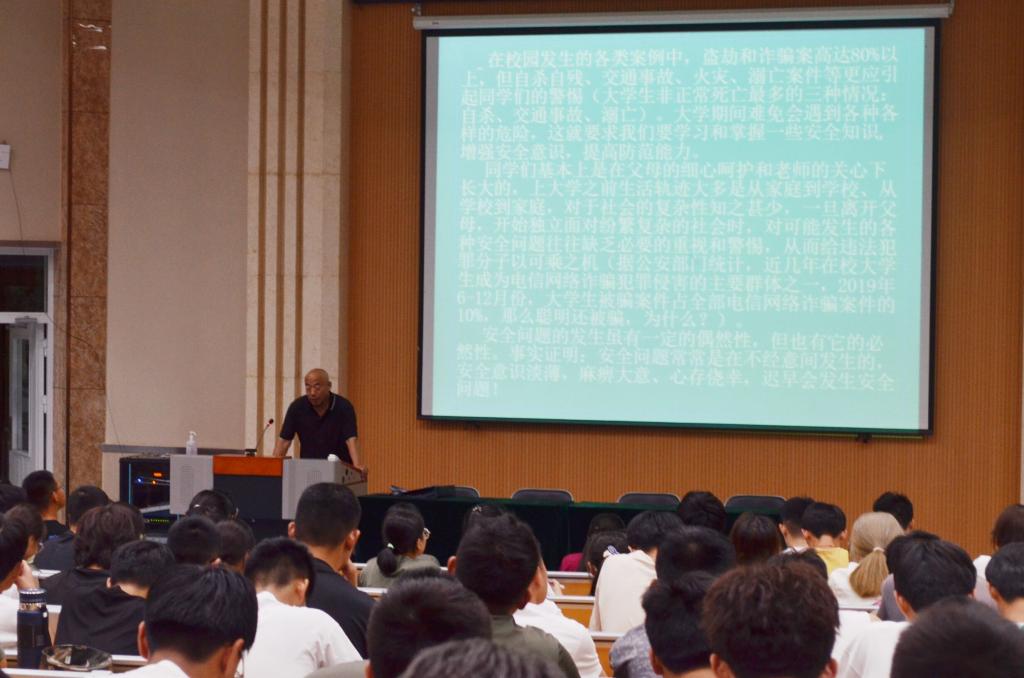 在校园发生的各类案例中，盗劫和诈骗案高达80%以
上，但自杀自残、交通事故、火灾、溺亡案件等更应引
起同学们的警惕（大学生非正常死亡最多的三种情况：
自杀、交通事故、溺亡）。大学期间难免会遇到各种各
样的危险，这就要求我们要学习和掌握一些安全知识，
增强安全意识，提高防范能力。
同学们基本上是在父母的细心呵护和老师的关心下
长大的，上大学之前生活轨迹大多是从家庭到学校、从
学校到家庭，对于社会的复杂性知之甚少，一旦离开父
母，开始独立面对纷繁复杂的社会时，对可能发生的各
种安全问题往往缺乏必要的重视和警惕，从而给违法犯
罪分子以可乘之机（据公安部门统计，近几年在校大学
生成为电信网络诈骗犯罪侵害的主要群体之一，2019年
6-12月份，大学生被骗案件占全部电信网络诈骗案件的
10%，那么聪明还被骗，为什么？）。
安全问题的发生虽有一定的偶然性，但也有它的必
然性。事实证明：安全问题常常是在不经意间发生的，
安全意识淡薄，麻痹大意、心存侥幸，迟早会发生安全
问题！